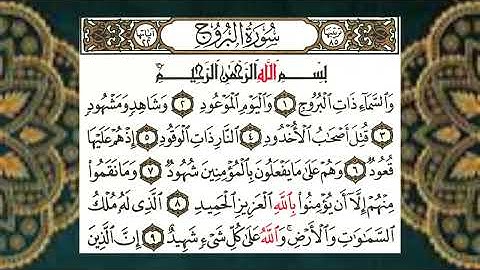 سُورَةُ الْبُرُوجِ
بِسْمِ اللَّهِ الرَّحْمَٰنِ الرَّحِيمِ
وَالسَّمَاءِ ذَاتِ الْبُرُوجِ ١ وَالْيَوْمِ الْمَوْعُودِ ٢ وَشَاهِدٍ وَمَشْهُودٍ
٣ قُتِلَ أَصْحَابُ الْأُخْدُودِ ٤ النَّارِ ذَاتِ الْوَقُودِ ٥ إِذْ هُمْ عَلَيْهَا
قُعُودٌ ٦ وَهُمْ عَلَىٰ مَا يَفْعَلُونَ بِالْمُؤْمِنِينَ شُهُودٌ ٧ وَمَا نَقَمُوا
مِنْهُمْ إِلَّا أَن يُؤْمِنُوا بِاللَّهِ الْعَزِيزِ الْحَمِيدِ ٨ الَّذِي لَهُ مُلْكُ
السَّمَاوَاتِ وَالْأَرْضِ ۚ وَاللَّهُ عَلَىٰ كُلِّ شَيْءٍ شَهِيدٌ ٩ إِنَّ الَّذِينَ